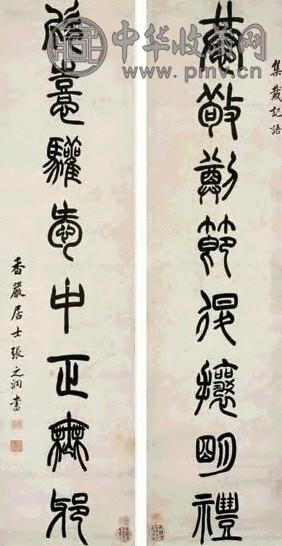 集戴記語
恭敬撙節退讓明禮
欣憙驩愛中正無邪
香嚴居士張之洞書
中华收藏网
www.pmv.cn